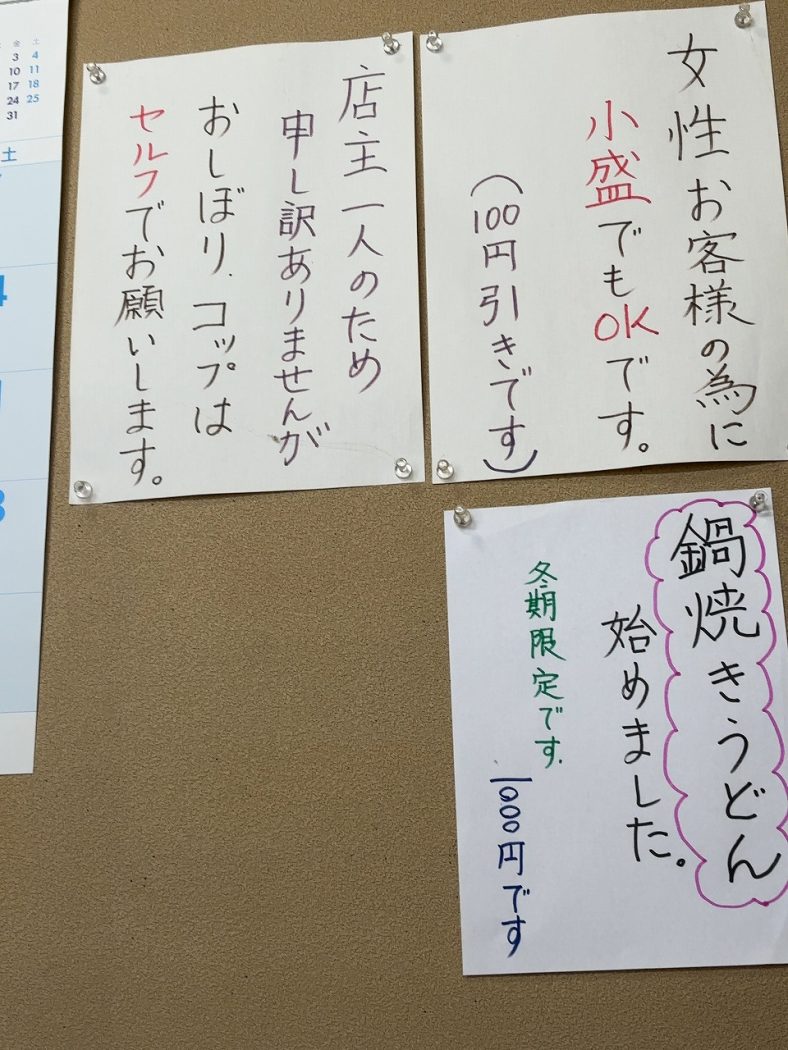 女性お客様の為に
小盛でもOKです。
(100円引きです)
店主一人のため
申し訳ありませんが
おしぼり、コップは
セルフでお願いします。
鍋焼きうどん
始めました。
冬期限定です.
1000円です
金 土
3 4
10 11
17 18
24 25
31
土